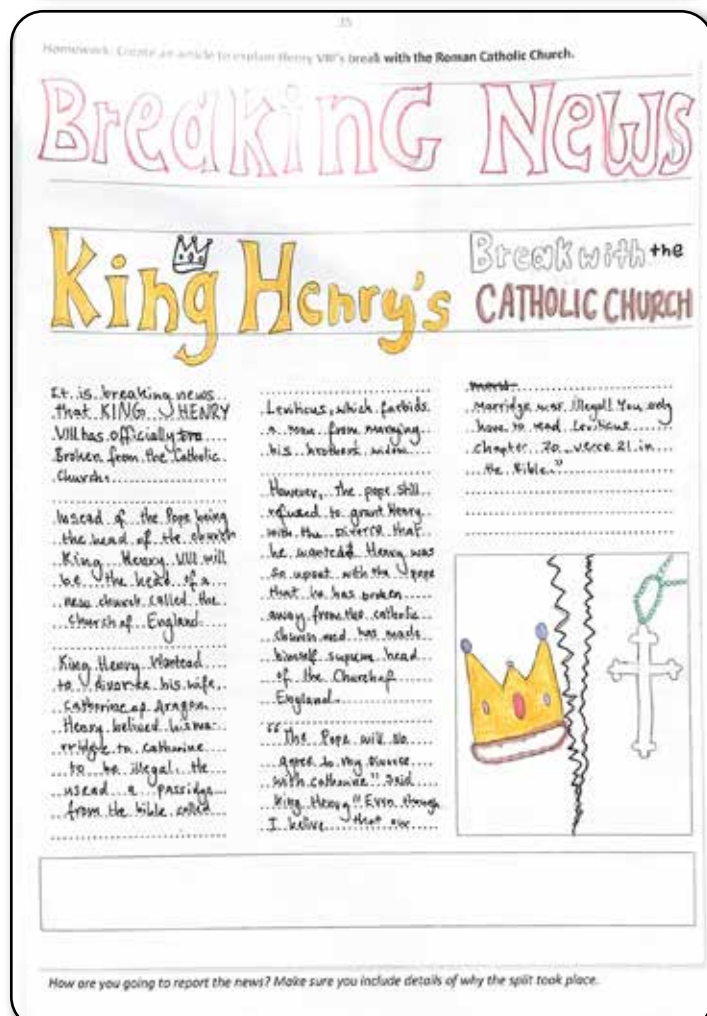 35
Homework: Create an article to explain Henry VIII's break with the Roman Catholic Church.
Breaking News
King Henry's
Break with the
CATHOLIC CHURCH
It is breaking news
that KING HENRY
VIII has officially bro
Broken from the Catholic
Church.
Insead of the Pope being
the head of the church
King Henry VIII will
be the head of a
new church called the
Church of England.
King Henry Wantead
to divorce his wife,
Catherine of Aragon.
Henry belived his ma-
rridge to catharine
to be illegal. He
usead a passidge
from the bible called
Leviticus, which forbids
a man from marrying
his brothers widow
However, the pope still
refused to grant Henry
with the Diverce that
he wanted. Henry was
so upset with the pope
that he has broken
away from the catholic
church and has made
himself suprem head
of the Church of
England.
"The Pope will no
agree to my divorce
with catharine" said
King Henry "Even though
I belive that our
Marridge war illegal! You only
have to read Leviticus
Chapter 20 verce 21 in
the Bible."
How are you going to report the news? Make sure you include details of why the split took place.